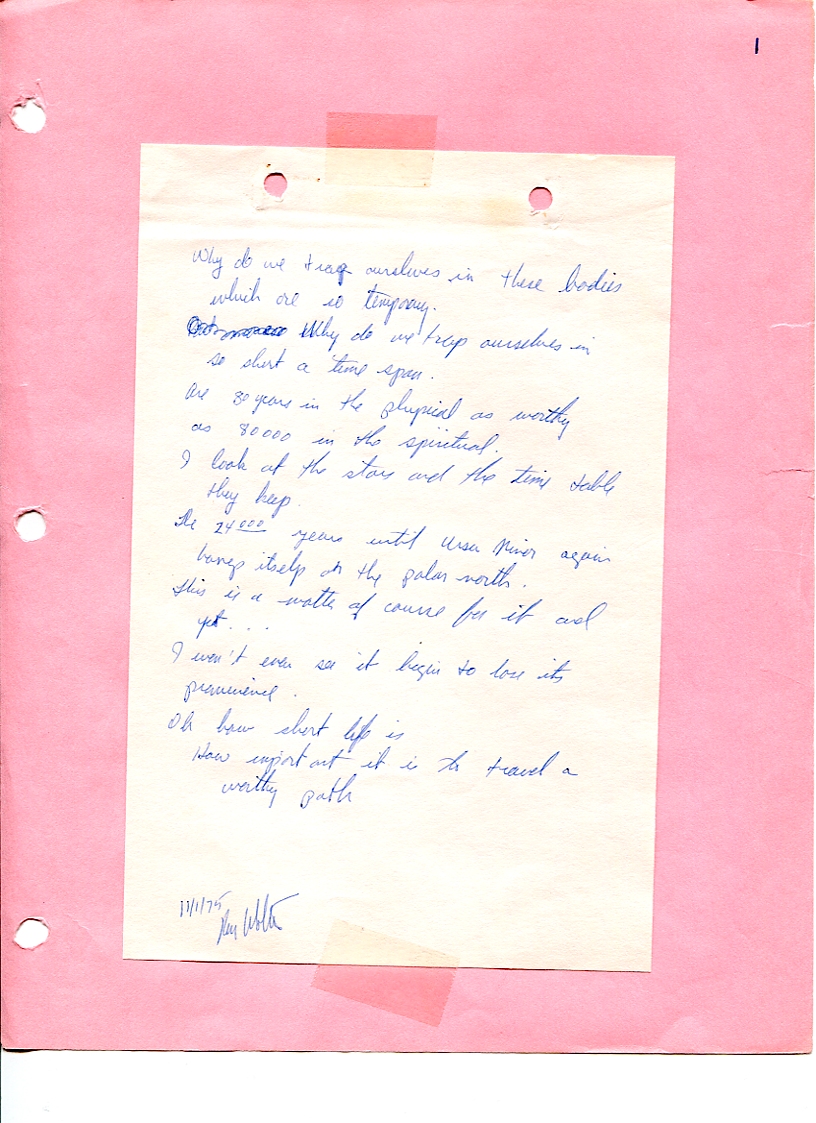 1
Why do we trap ourselves in these bodies
which are so temporary.
Why do we trap ourselves in
so short a time span.
Are 80 years in the physical as worthy
as 80000 in the spiritual.
I look at the stars and the time table
they keep.
The 24000 years until Ursa Minor again
hangs itself on the polar north.
This is a matter of course for it and
yet . . .
I won't even see it begin to lose its
prominence.
Oh how short life is
How important it is to travel a
worthy path
11/1/75